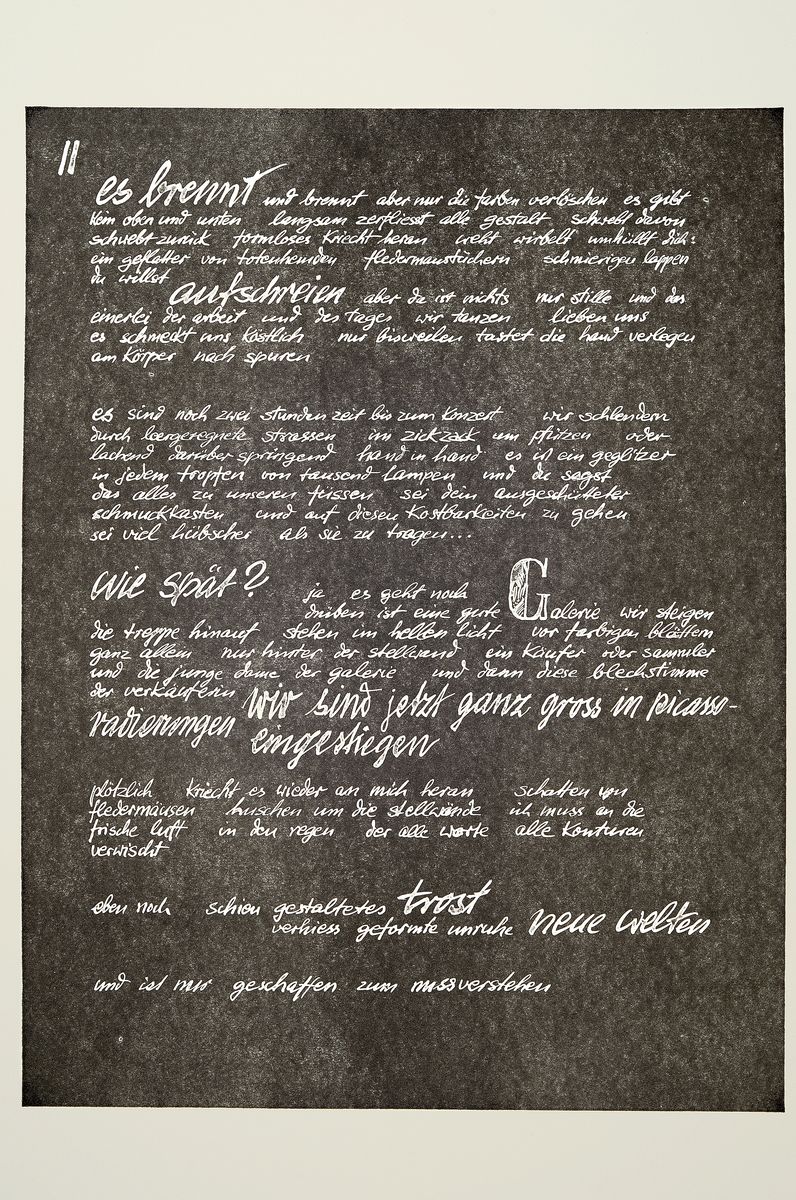 II
es brennt und brennt aber nur die farben verlöschen es gibt
kein oben und unten langsam zerfliesst alle gestalt schwebt davon
schwebt zurück formloses kriecht heran weht wirbelt umhüllt dich:
ein geflatter von totenhemden fledermaustüchern schmierigen lappen
du willst
aufschreien aber da ist nichts nur stille und das
einerlei der arbeit und des tages wir tanzen lieben uns
es schmeckt uns köstlich nur bisweilen tastet die hand verlegen
am körper nach spuren
es sind noch zwei stunden zeit bis zum konzert wir schlendern
durch leergeregnete strassen im zickzack um pfützen oder
lachend darüber springend hand in hand es ist ein geglitzer
in jedem tropfen von tausend lampen und du sagst
das alles zu unseren füssen sei dein ausgeschütteter
schmuckkasten und auf diesen kostbarkeiten zu gehen
sei viel hübscher als sie zu tragen...
wie spät? ja es geht noch
drüben ist eine gute Galerie wir steigen
die treppe hinauf stehen im hellen licht vor farbigen blättern
ganz allein nur hinter der stellwand ein käufer oder sammler
und die junge dame der galerie und dann diese blechstimme
der verkäuferin wir sind jetzt ganz gross in picasso-
radierungen eingestiegen
plötzlich kriecht es wieder an mich heran schatten von
fledermäusen huschen um die stellwände ich muss an die
frische luft in den regen der alle worte alle konturen
verwischt
eben noch schien gestaltetes trost
verhiess geformte unruhe neue welten
und ist nur geschaffen zum missverstehen